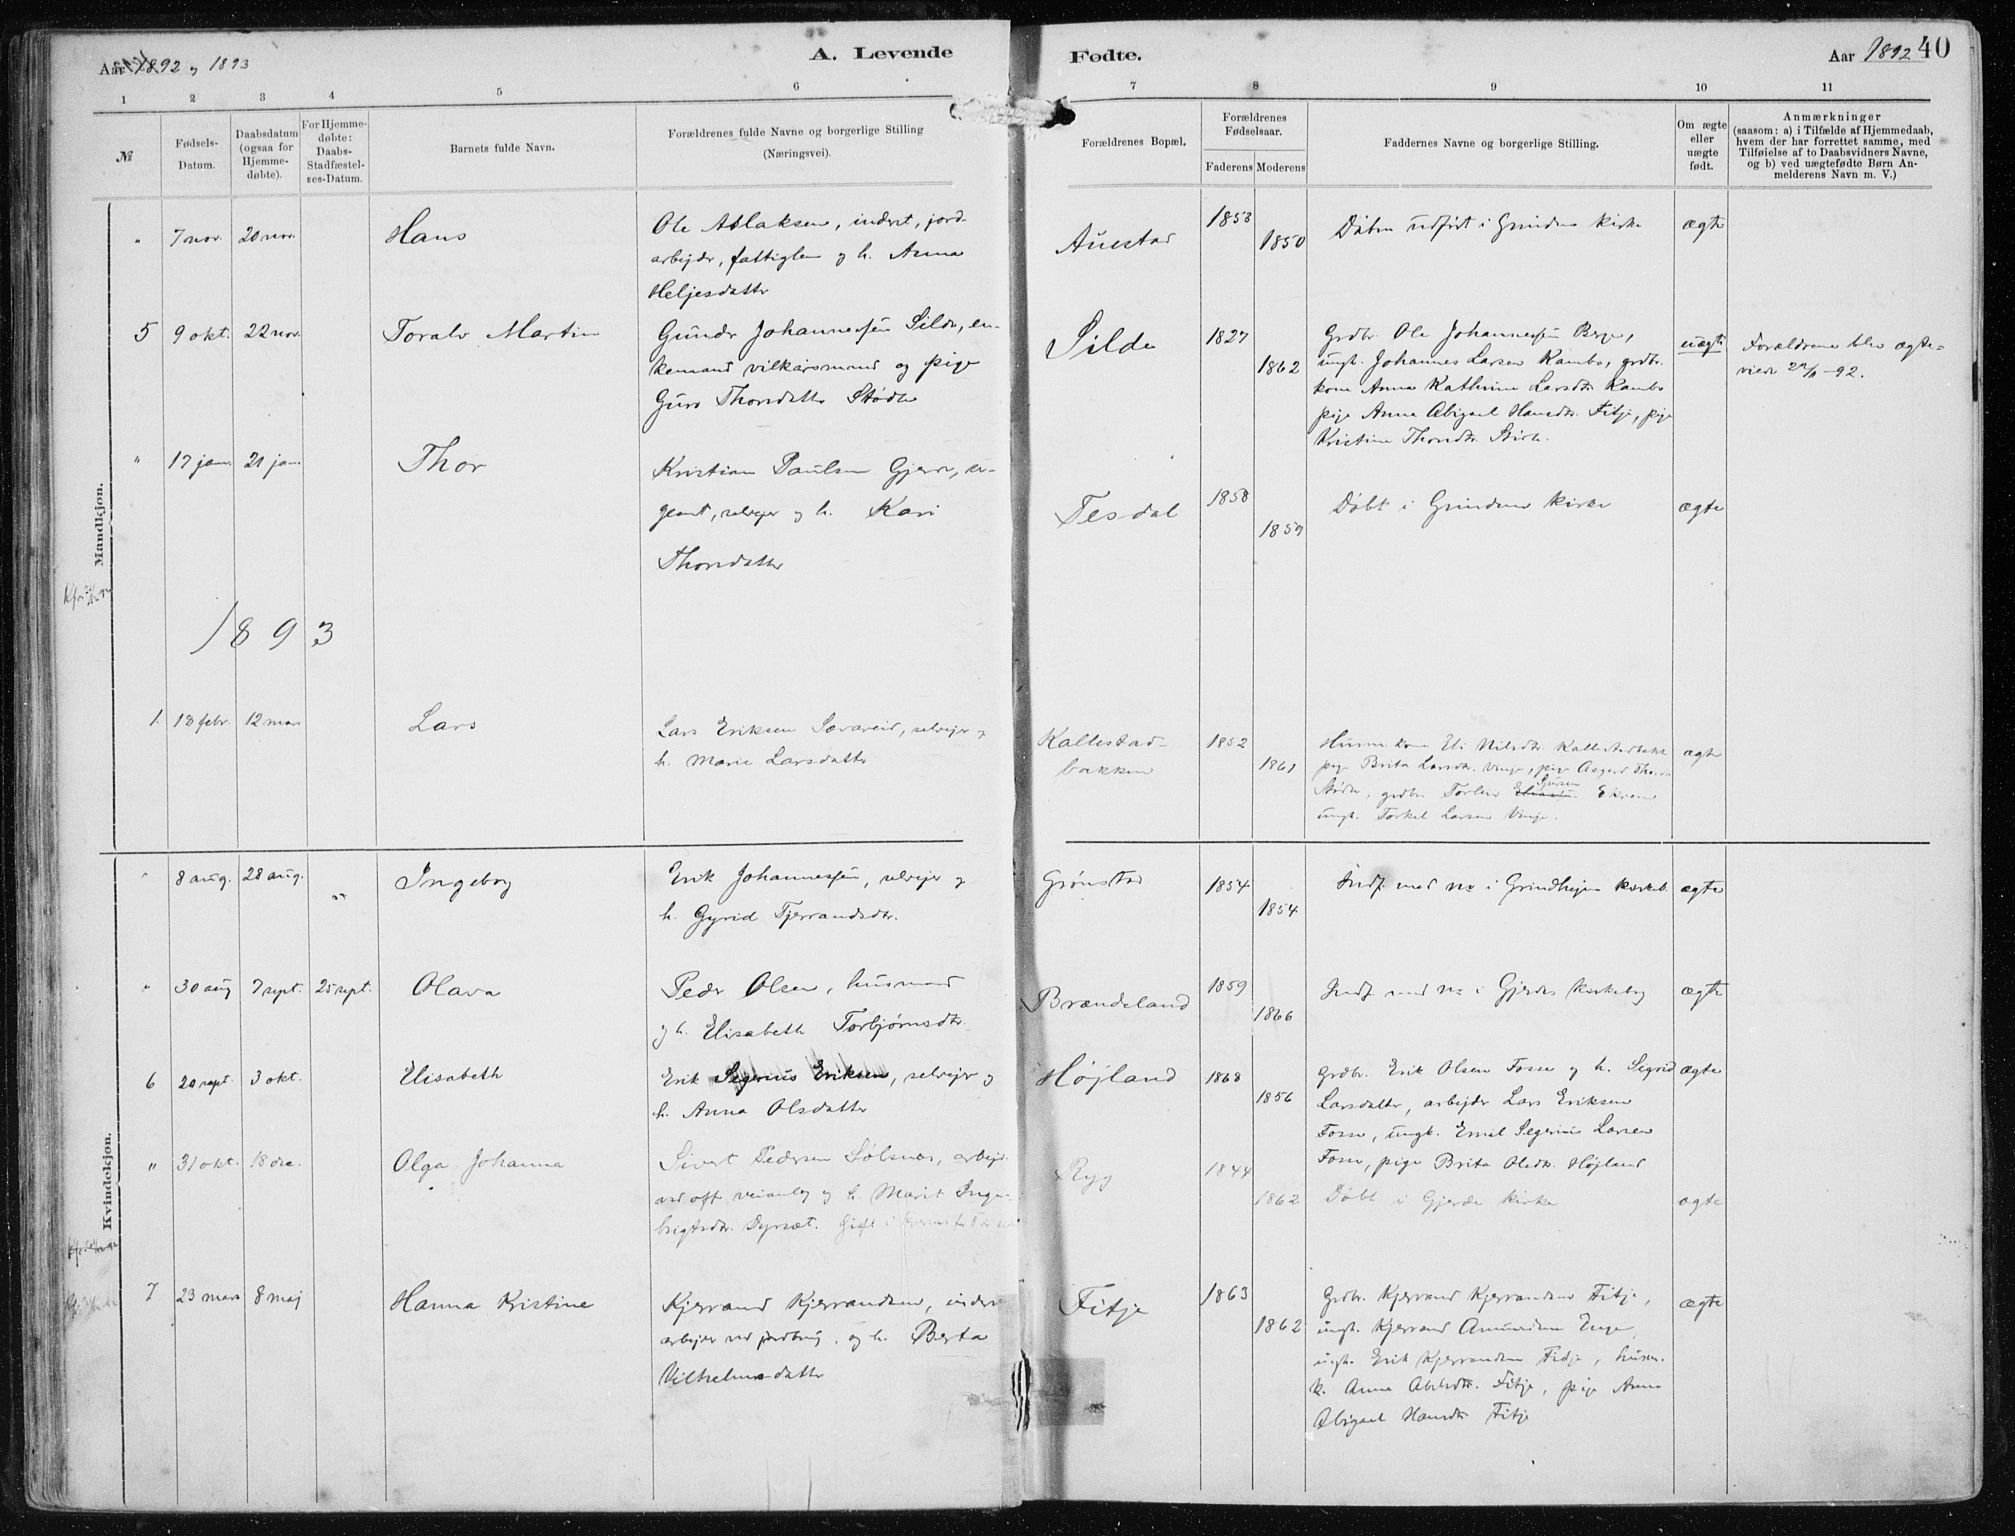 Aar 1892 og 1893
A. Levende Fødte.
Aar 1892
40
1 2 3 4 5 6 7 8 9 10 11
№
Fødsels-Datum.
Daabsdatum (ogsaa for Hjemme-døbte).
For Hjemme-døbte: Daabs-Stadfæstel-ses-Datum.
Barnets fulde Navn.
Forældrenes fulde Navne og borgerlige Stilling (Næringsvei).
Forældrenes Bopæl.
Forældrenes Fødselsaar.
Faderens Moderens
Faddernes Navne og borgerlige Stilling.
Om ægte eller uægte født.
Anmærkninger
(saasom: a) i Tilfælde af Hjemmedaab, hvem der har forrettet samme, med Tilføielse af to Daabsvidners Navne, og b) ved uægtefødte Børn An-melderens Navn m. V.)
Mandkjøn.
" 7 nov. 20 nov. Hans
Ole Aslaksen, inderst, jord-
arbejder, fattiglem og h. Anna
Heljesdatter
Auestad 1853 1850
Døbt i Grinden kirke
ægte
5 9 okt. 22 nov. Toralv Martin
Gunder Johannessen Silde, en-
kemand vilkårsmand og pige
Guro Thorsdatter Stødle
Silde 1827 1862
Grdbr. Ole Johannessen Berge,
ungk. Johannes Larsen Kambo, grdbr.
kone Anna Kathrine Larsdtr. Kambo
pige Anna Abigael Hansdtr. Fitje, pige
Kristine Thorsdtr.
uægte
Forældrene blev ægte-
viede -92.
" 17 jan. 21 jan. Thor
Kristian Paulsen Gjerde, ser-
geant, selvejer og h. Kari
Thorsdatter
Tesdal 1858 1859
Døbt i Grinden kirke
ægte
1893
1. 18 febr. 12 mars Lars
Lars Eriksen Sævareid, selvejer og
h. Marie Larsdatter
Kallestad-
bakken
1852 1861
Husm. kone Eli Nilsdtr. Kallestadbakk.
pige Brita Larsdtr. Vinje, pige Aagot Thors
Stødle, grdbr. Torleiv Sjursen Ekrene
ungk. Torkel Larsen Vinje.
ægte
Kvindekjøn.
" 8 aug. 28 aug. " Ingeborg
Erik Johannessen, selvejer og
h. Gyrid Tjerrandsdtr.
Grønstad 1854 1854
Indf. med no i Grindhejm kirkeb.
ægte
" 30 aug 7 sept. 25 sept. Olava
Peder Olsen, husmand
og h. Elisabeth Torbjørnsdtr.
Brændeland 1859 1866
Indf. med no i Gjerdes kirkebog
ægte
6 20 sept. 3 okt. Elisabeth
Erik Segerius Eriksen, selvejer og
h. Anna Olsdatter
Højland 1868 1856
Grdbr. Erik Olsen Fosse og h. Sigrid
Larsdatter, arbejder Lars Eriksen
Fosse, ungk. Emil Segerius Larsen
Fosse, pige Brita Olsdtr. Højland
ægte
" 31 okt. 18 dec. Olga Johanna
Sivert Pedersen Sølsnæs, arbejd.
ved off. veianlæg og h. Marit Inge-
brigtsdtr. Dyrsæt. Gift i
Ryg 1844 1862
Døbt i Gjerde kirke
ægte
7 23 mars 8 maj Hanna Kristine
Kjerrand Kjerrandsen, inderst
arbejder ved jordbrug, og h. Berta
Vilhelmsdatter
Fitje 1863 1862
Grdbr. Kjerrand Kjerrandsen Fitje,
ungk. Kjerrand Amundsen Enge,
ungk. Erik Kjerrandsen Fidje, husm.
k. Anna Abelsdtr. Fitje, pige Anna
Abigael Hansdtr. Fitje
ægte